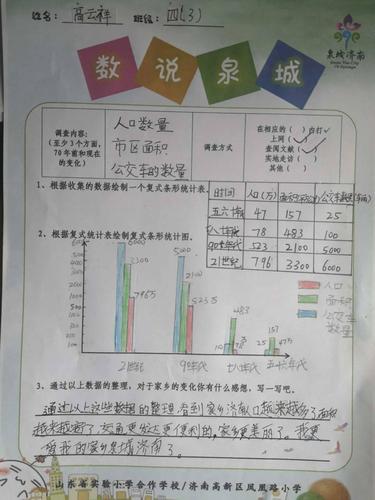 姓名：高云祥 班级：四(3)
数说泉城
泉城济南
调查内容：
(至少3个方面，
70年前和现在
的变化)
人口数量
市区面积
公交车的数量
调查方式
在相应的( )内打✓
上网(✓)
查阅文献(✓)
实地走访( )
其他( )
1、根据收集的数据绘制一个复式条形统计表。
时间 人口(万) 公交车数量(辆)
五六十年代 47 157 25
七八十年代 78 483 100
90年代 523 2100 5000
21世纪 796 3300 6000
2、根据复式统计表绘制复式条形统计图。
人口
面积
公交车
数量
6000
3300
796万
5000
2100
523万
483
100
157
25
47万
21世纪 90年代 七八十年代 五六十年代
3、通过以上数据的整理，对于家乡的变化你有什么感想，写一写吧。
通过以上这些数据的整理，看到家乡济南人口越来越多了，面积
越来越大了，交通更发达更便利的，家乡更美丽了。我更
爱我的家乡泉城济南了。
山东省实验小学合作学校/济南高新区凤凰路小学